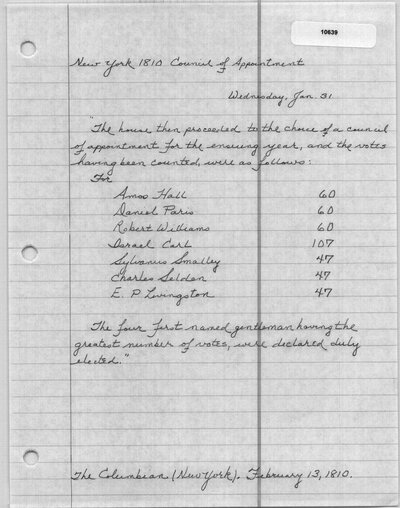 10639
New York 1810 Council of Appointment
Wednesday, Jan. 31
"The house then proceeded to the choice of a council
of appointment for the ensuing year, and the votes
having been counted, were as follows:
For
Amos Hall 60
Daniel Paris 60
Robert Williams 60
Israel Carl 107
Sylvanus Smalley 47
Charles Selden 47
E. P. Livingston 47
The four first named gentleman having the
greatest number of votes, were declared duly
elected."
The Columbian (New York). February 13, 1810.